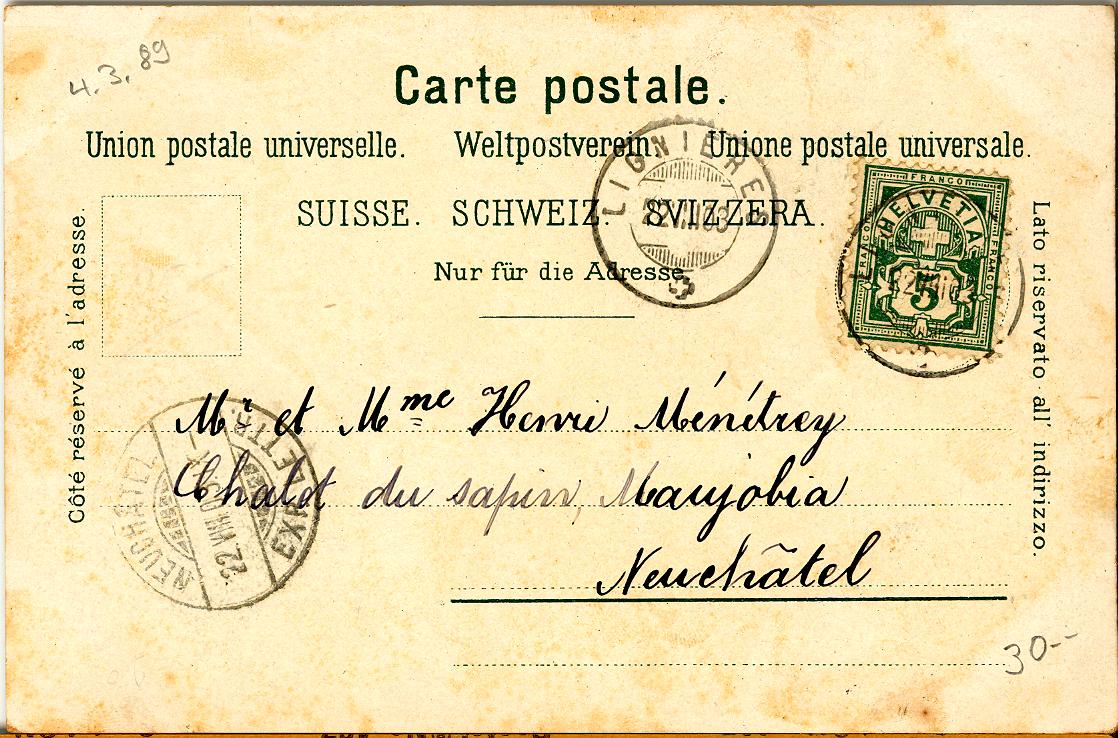 4.3.89
Carte postale.
Union postale universelle. Weltpostverein. Unione postale universale.
SUISSE. SCHWEIZ. SVIZZERA.
Nur für die Adresse
Côté réservé à l'adresse.
Lato riservato all' indirizzo.
LIGNIERES
FRANCO
FRANCO
FRANCO
HELVETIA
5
Mr et Mme Henri Ménétrey
Chalet du sapin, Maujobia
Neuchâtel
NEUCHATEL
22 VIII
EXP. LETTR.
30--